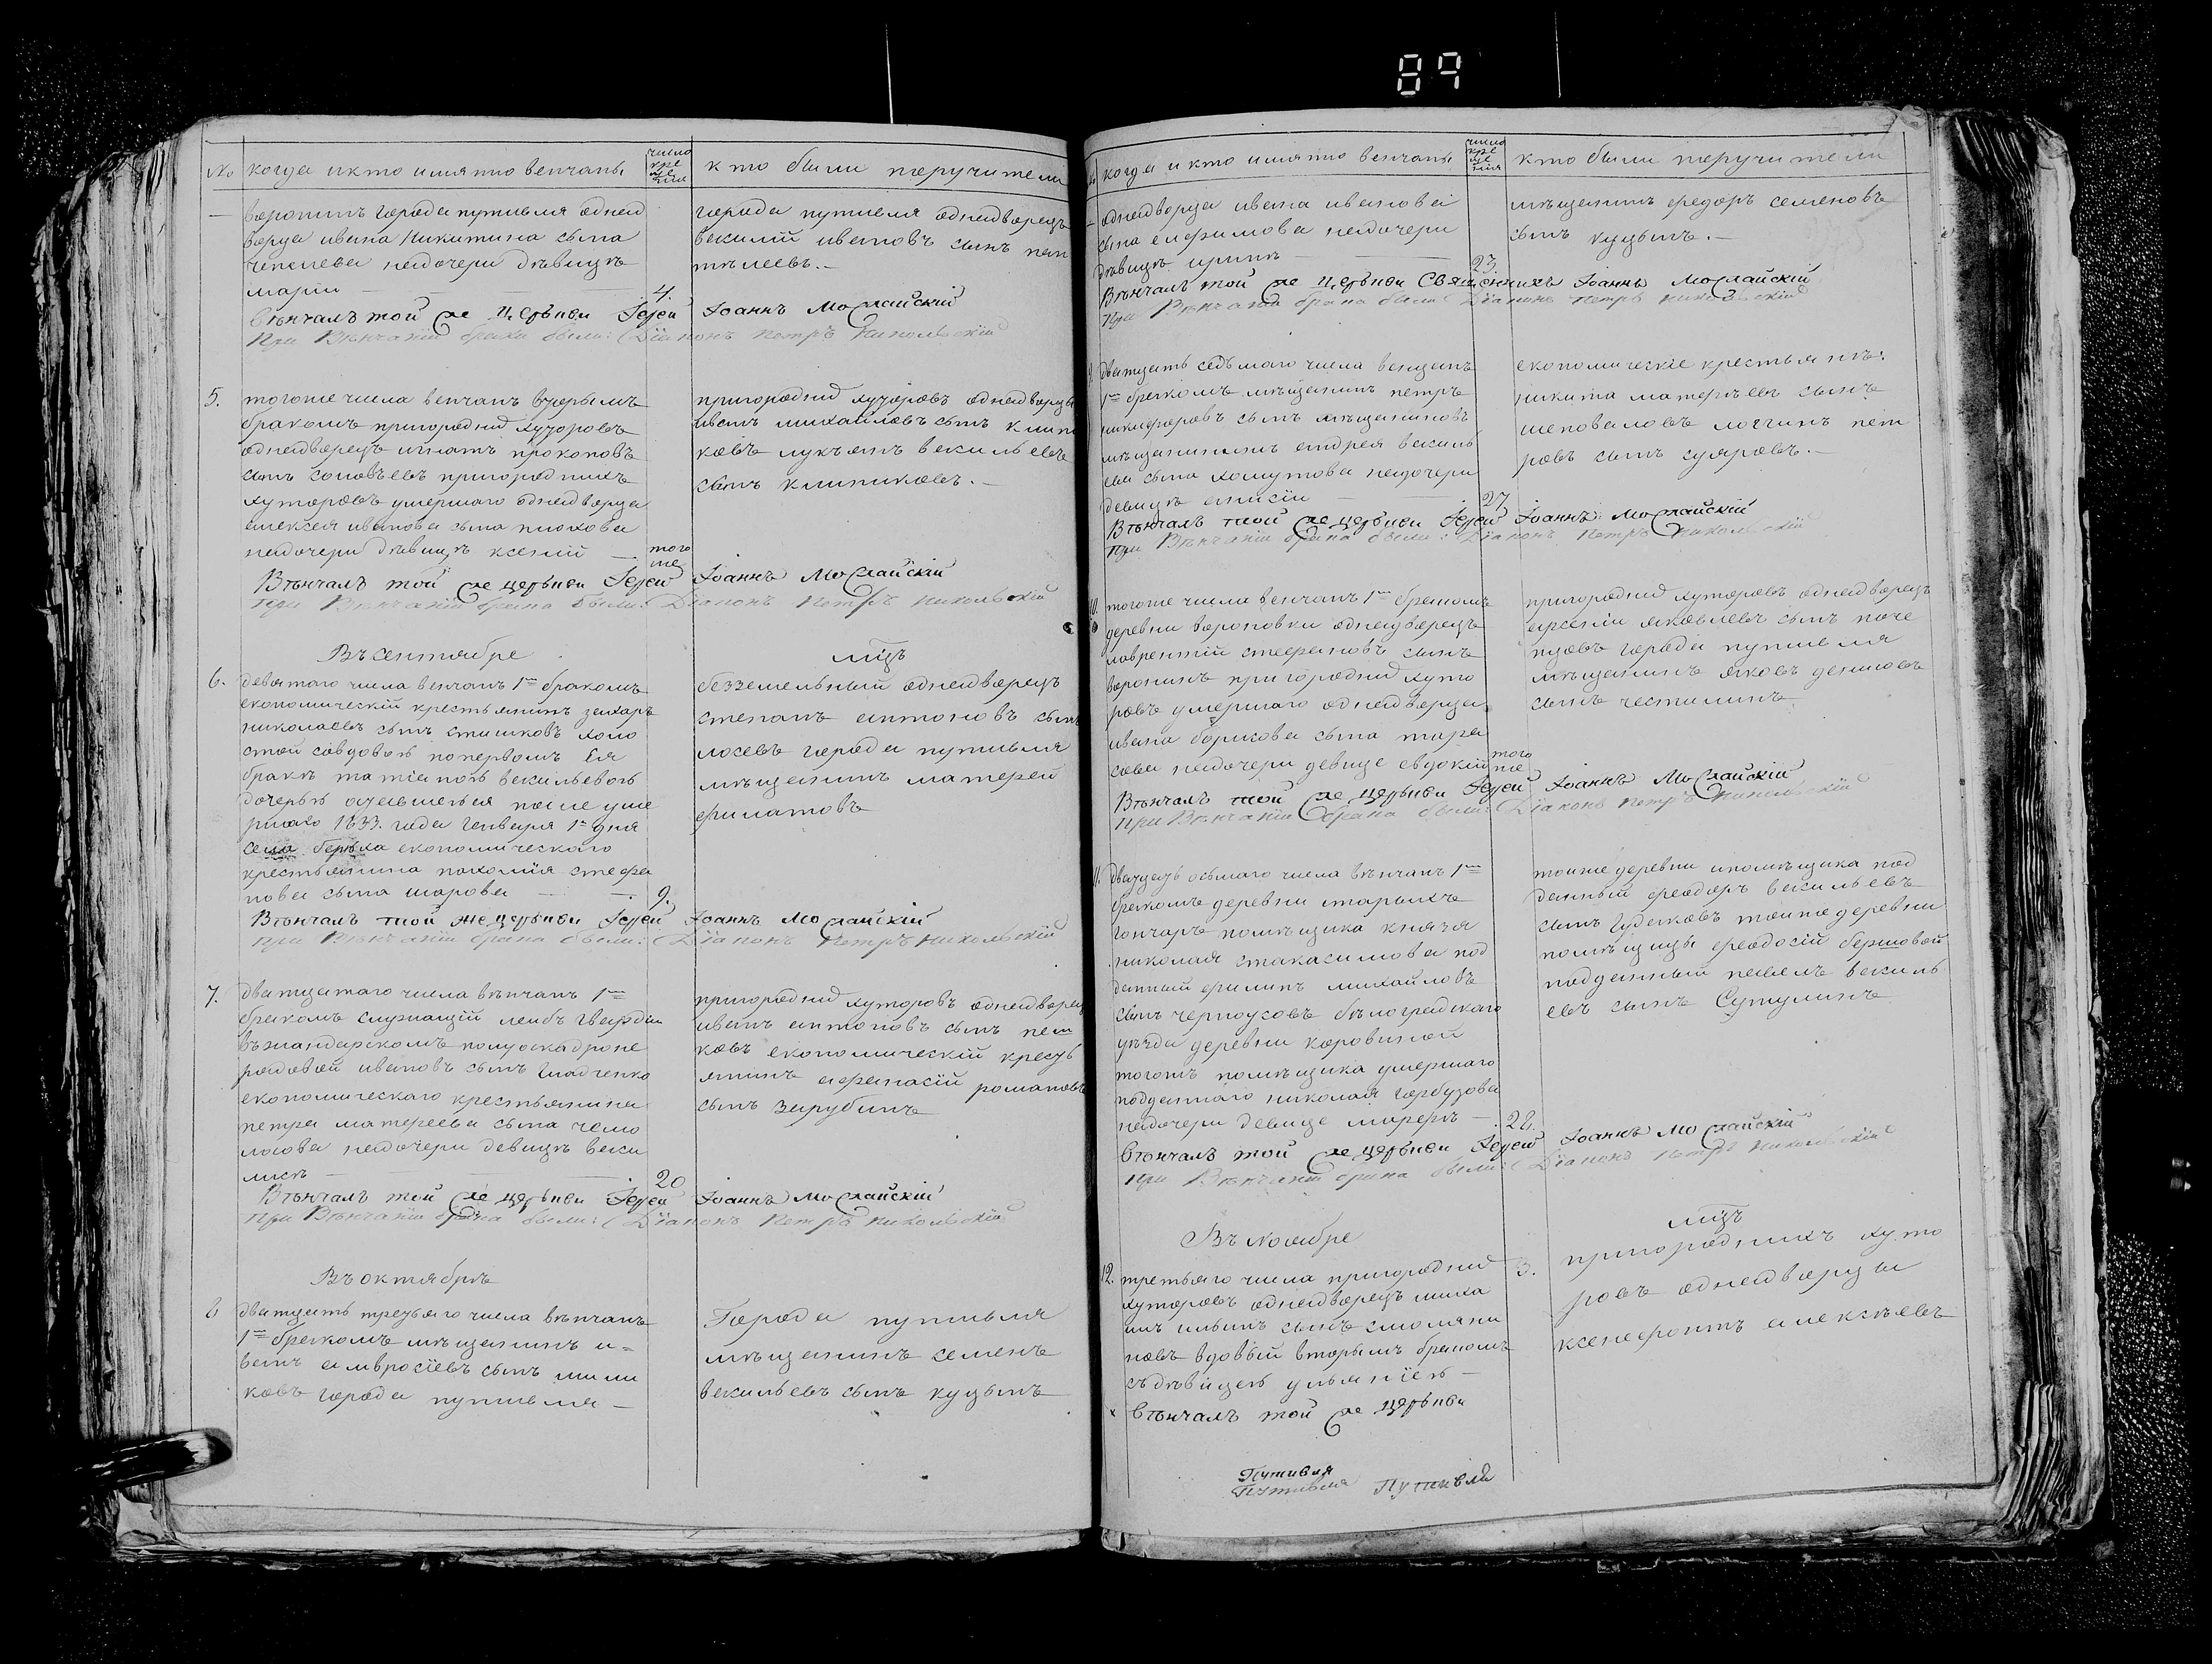 89
№ когда икто имянно венчаны
число кре ще ния
кто были перучители
воронинъ города путивля однод
ворца ивана Никитина сына
чепелева надочери дѣвицѣ
марiи 4.
города путивля однодворецъ
василiй ивановъ сынъ пан
телеевъ.
Вѣнчалъ той же церькви Iерей Iоаннъ Можайскiй
При Вѣнчанiи брака были: Дiаконъ Петръ Никольскiй
5. тогоже числа венчанъ вторымъ
бракомъ пригородних хуторовъ
однодворецъ игнатъ прокоповъ
сынъ соловьевъ пригороднихъ
хуторовъ умершаго однодворца
алексея иванова сына
надочери дѣвицѣ ксенiи того же
пригородних хуторовъ однодворцы
иванъ михайловъ сынъ
ковъ лукъянъ васильевъ
сынъ климковъ.
Вѣнчалъ той же церькви Iерей Iоаннъ Можайскiй
при Вѣнчанiи брака были: Дiаконъ Петръ Никольскiй
Въ сентябре
мцъ
6. девятаго числа венчанъ 1м бракомъ
економическiй крестьянинъ захаръ
николаевъ сынъ сташковъ холо
стой совдовою попервомъ Ея
бракѣ татiаною васильевою
дочерью оставшеюся после уме
ршаго 1833. года Генваря 1го дня
села берюха економическаго
крестьянина пахомiя стефа
нова сына шарова 9.
безземельный однодворецъ
степанъ антоновъ сынъ
лосевъ города путивля
мѣщанинъ матфей
филатовъ
Вѣнчалъ той же церькви Iерей Iоаннъ Можайскiй
при Вѣнчанiи брака были: Дiаконъ Петръ Никольскiй
7. дватцатаго числа вѣнчанъ 1м
бракомъ служащiй лейбъ гвардiи
въжандарскомъ полуескадроне
рядовой ивановъ сынъ гладченко
економическаго крестьянина
петра матфеева сына чемо
лосова надочери девицѣ васи
лисѣ 20
пригородних хуторовъ однодворец
иванъ антоновъ сынъ пет
ковъ економическiй кресть
янинъ афанасiй романовъ
сынъ зарубинъ
Вѣнчалъ той же церькви Iерей Iоаннъ Можайскiй
при Вѣнчанiи брака были: Дiаконъ Петръ Никольскiй
Въ октябрѣ
8 дватцать третьяго числа вѣнчанъ
1м бракомъ мѣщанинъ и=
ванъ амвросiевъ сынъ мили
ковъ города путивля
Города путивля
мѣщанинъ семенъ
васильевъ сынъ куцынъ
когда и кто имянно венчаны
число кре ще нiя
кто были перучители
однодворца ивана иванова
сына ефимова надочери
дѣвицѣ иринѣ 23.
мѣщанинъ федоръ семеновъ
сынъ куцынъ.
Вѣнчалъ той же церькви Священникъ Iоаннъ Можайскiй
при Вѣнчанiи брака были: Дiаконъ Петръ Никольскiй
9. дватцать седьмаго числа венчанъ
1м бракомъ мѣщанинъ петръ
никифоровъ сынъ мѣщаниновъ
мѣщанина андрея василь
ева сына хомутова надочери
девицѣ анисiи 27
економическiе крестьяне:
никита матфѣевъ сынъ
шеповаловъ логгинъ пет
ровъ сынъ суяровъ.
Вѣнчалъ той же церькви Iерей Iоаннъ Можайскiй
при Вѣнчанiи брака были: Дiаконъ Петръ Никольскiй
10. тогоже числа венчанъ 1м бракомъ
деревни вороновки однодворецъ
лаврентiй стефановъ сынъ
воронинъ пригородних хуто
ровъ умершаго однодворца
ивана борисова сына тара
сова надочери девице евдокiи того же
пригородних хуторовъ однодворецъ
арсенiй яковлевъ сынъ поче
пцовъ города путивля
мѣщанинъ яковъ денисовъ
сынъ честилинъ
Вѣнчалъ той же церькви Iерей Iоаннъ Можайскiй
при Вѣнчанiи брака были: Дiаконъ Петръ Никольскiй
11. двадцать осьмаго числа вѣнчанъ 1м
бракомъ деревни старыхъ
гончаръ помѣщика князя
николая под
данный филипъ михайловъ
сынъ черноусовъ бѣлоградскаго
уѣзда деревни коровиной
тогожъ помѣщика умершаго
подданнаго николая гарбузова
надочери девице марфѣ 28.
тоиже деревни ипомѣщика под
данный феодоръ васильевъ
сынъ Гудаковъ тоиже деревни
помѣщицы феодосiи
подданный павелъ василь
евъ сынъ Сутулинъ
Вѣнчалъ той же церькви Iерей Iоаннъ Можайскiй
при Вѣнчанiи брака были: Дiаконъ Петръ Никольскiй
Въ Ноябре
мцъ
12. третьяго числа пригородних
хуторовъ однодворецъ миха
илъ ильинъ сынъ смоляни
новъ вдовый вторымъ бракомъ
съдѣвицею ульянiею 3.
пригороднихъ хуто
ровъ однодворцы
ксенофонтъ алексѣевъ
Вѣнчалъ той же церькви
Путивля
Путивля Путивля